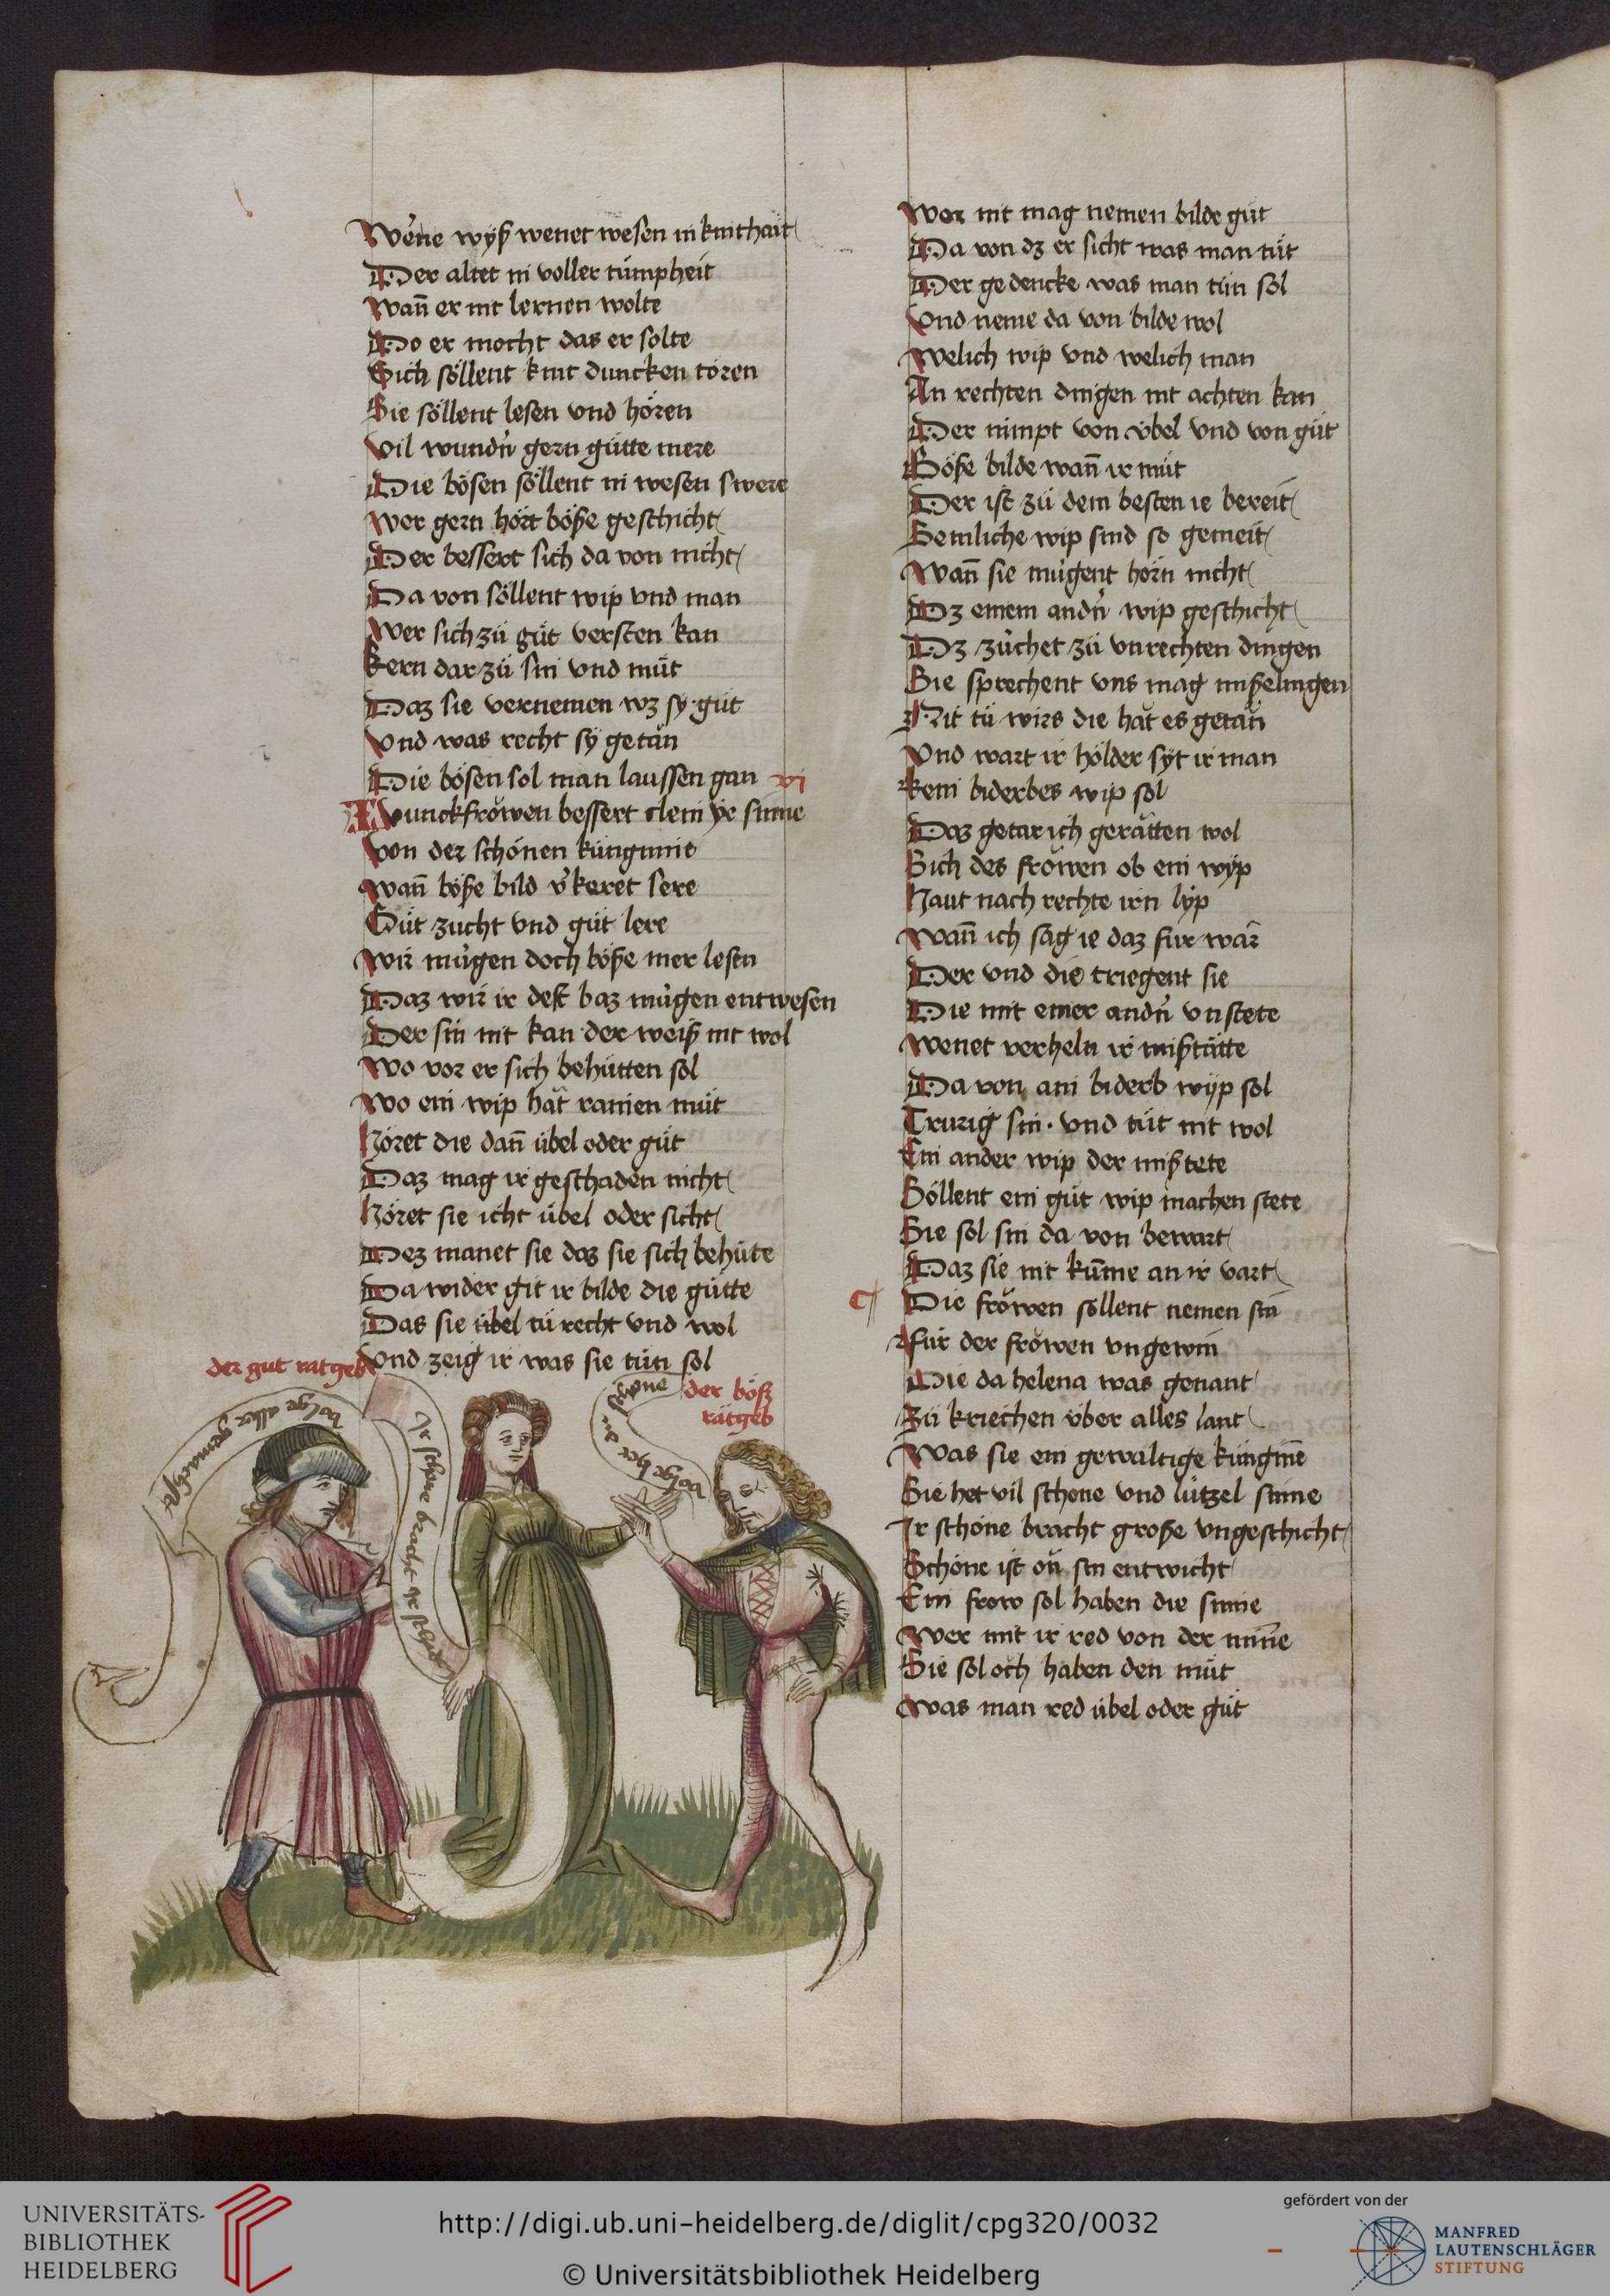 Wene wyß wenet wesen in kintheit
Der altet in voller tumpheit
Wann̄ er nit lernen wolte
Do er mocht das er solte
Sich söllent kint duncken toren
Sie söllent lesen vnd hören
Vil wundn̄ gern gütte mere
Die bösen söllent in wesen swere
Wer gern hört böße geschicht
Der bessert sich da von nicht
Da von söllent wip vnd man
Wer sich zü güt versten kan
Kern dar zü sin vnd müt
Daz sie vernemen wz sy güt
Vnd was recht sy getän
Die bösen sol man laussen gan vj
Junckfrowen bessert clein yr sinne
Von der schönen küngynne
Wann̄ böße bild v̄keret sere
Güt zucht vnd güt lere
Wir mügen doch böße mer lesen
Daz wir ir dest baz mügen entwesen
Der sin nit kan der weiß nit wol
Wo vor er sich behütten sol
Wo ein wip hät rainen müt
Höret die dann̄ übel oder güt
Daz mag ir geschaden nicht
Höret sie icht übel oder sicht
Dez manet sie daz sie sich behüte
Da wider git ir bilde die gütte
Das sie übel tü recht vnd wol
Vnd zeig ir was sie tün sol
der gut ratgeb
der böß
rätgeb
volge aller gemachst
Ir schone bracht ir
volge
Wer nit mag nemen bilde güt
Da von dz er sicht was man tüt
Der gedencke was man tün sol
Vnd neme da von bilde wol
Welich wip vnd welich man
An rechten dingen nit achten kan
Der nimpt von vbel vnd von güt
Böße bilde wann̄ ir müt
Der ist zü dem besten ie bereit
Semliche wip sind so gemeit
Wann̄ sie mügent hörn nicht
Dz einem andn̄ wip geschicht
Dz züchet zü vnrechten dingen
Sie sprechent vns mag mißelingen
Nit tü wirs die hät es getän
Vnd wart ir hölder syt ir man
Kein biderbes wip sol
Daz getar ich gerätten wol
Sich des fröwen ob ein wyp
Haut nach rechte irn lyp
Wann̄ ich sag ie daz für wär
Der vnd die triegent sie
Die mit einer andn̄ vnstete
Wenet verheln ir mißtätte
Da von ain biderb wyp sol
Trurig sin. vnd tüt nit wol
Ein ander wip der mißtete
Söllent ein güt wip machen stete
Sie sol sin da von bewart
Daz sie nit kūme an ir vart
Die fröwen söllent nemen sin
Für der fröwen vngewin
Die da helena was genant
Zü kriechen über alles lant
Was sie ein gewaltige künginē
Sie het vil schone vnd lützel sinne
Ir schöne bracht große vngeschicht
Schöne ist on̄ sin entwicht
Ein frow sol haben die sinne
Wer mit ir red von der minne
Sie sol och haben den müt
Was man red übel oder güt
UNIVERSITÄTS-
BIBLIOTHEK
HEIDELBERG
http://digi.ub.uni-heidelberg.de/diglit/cpg320/0032
© Universitätsbibliothek Heidelberg
gefördert von der
MANFRED
LAUTENSCHLÄGER
STIFTUNG